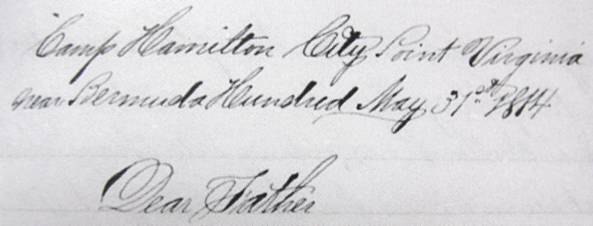 Camp Hamilton City Point Virginia
near Bermuda Hundred May 31st 1814
Dear Father